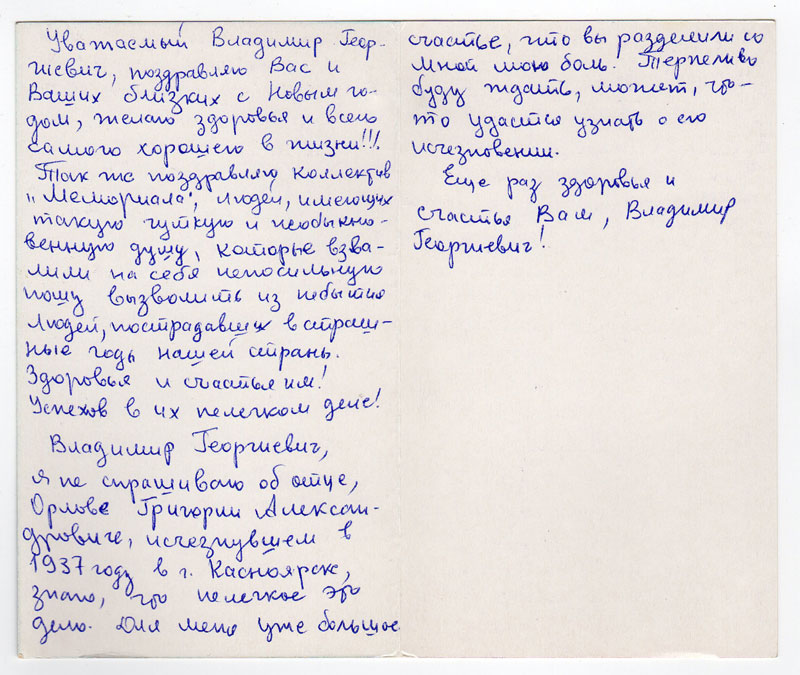 Уважаемый Владимир Геор-
гиевич, поздравляю Вас и
Ваших близких с Новым го-
дом, желаю здоровья и всего
самого хорошего в жизни!!!
Так же поздравляю коллектив
„Мемориала", людей, имеющих
такую чуткую и необыкно-
венную душу, которые взва-
лили на себя непосильную
ношу вызволить из небытия
людей, пострадавших в страш-
ные годы нашей страны.
Здоровья и счастья им!
Успехов в их нелегком деле!
Владимир Георгиевич,
я не спрашиваю об отце,
Орлове Григории Алексан-
дровиче, исчезнувшем в
1937 году в г. Касноярске,
знаю, что нелегкое это
дело. Для меня уже большое
счастье, что вы разделили со
мной мою боль. Терпеливо
буду ждать, может, что-
то удастся узнать о его
исчезновении.
Еще раз здоровья и
счастья Вам, Владимир
Георгиевич!